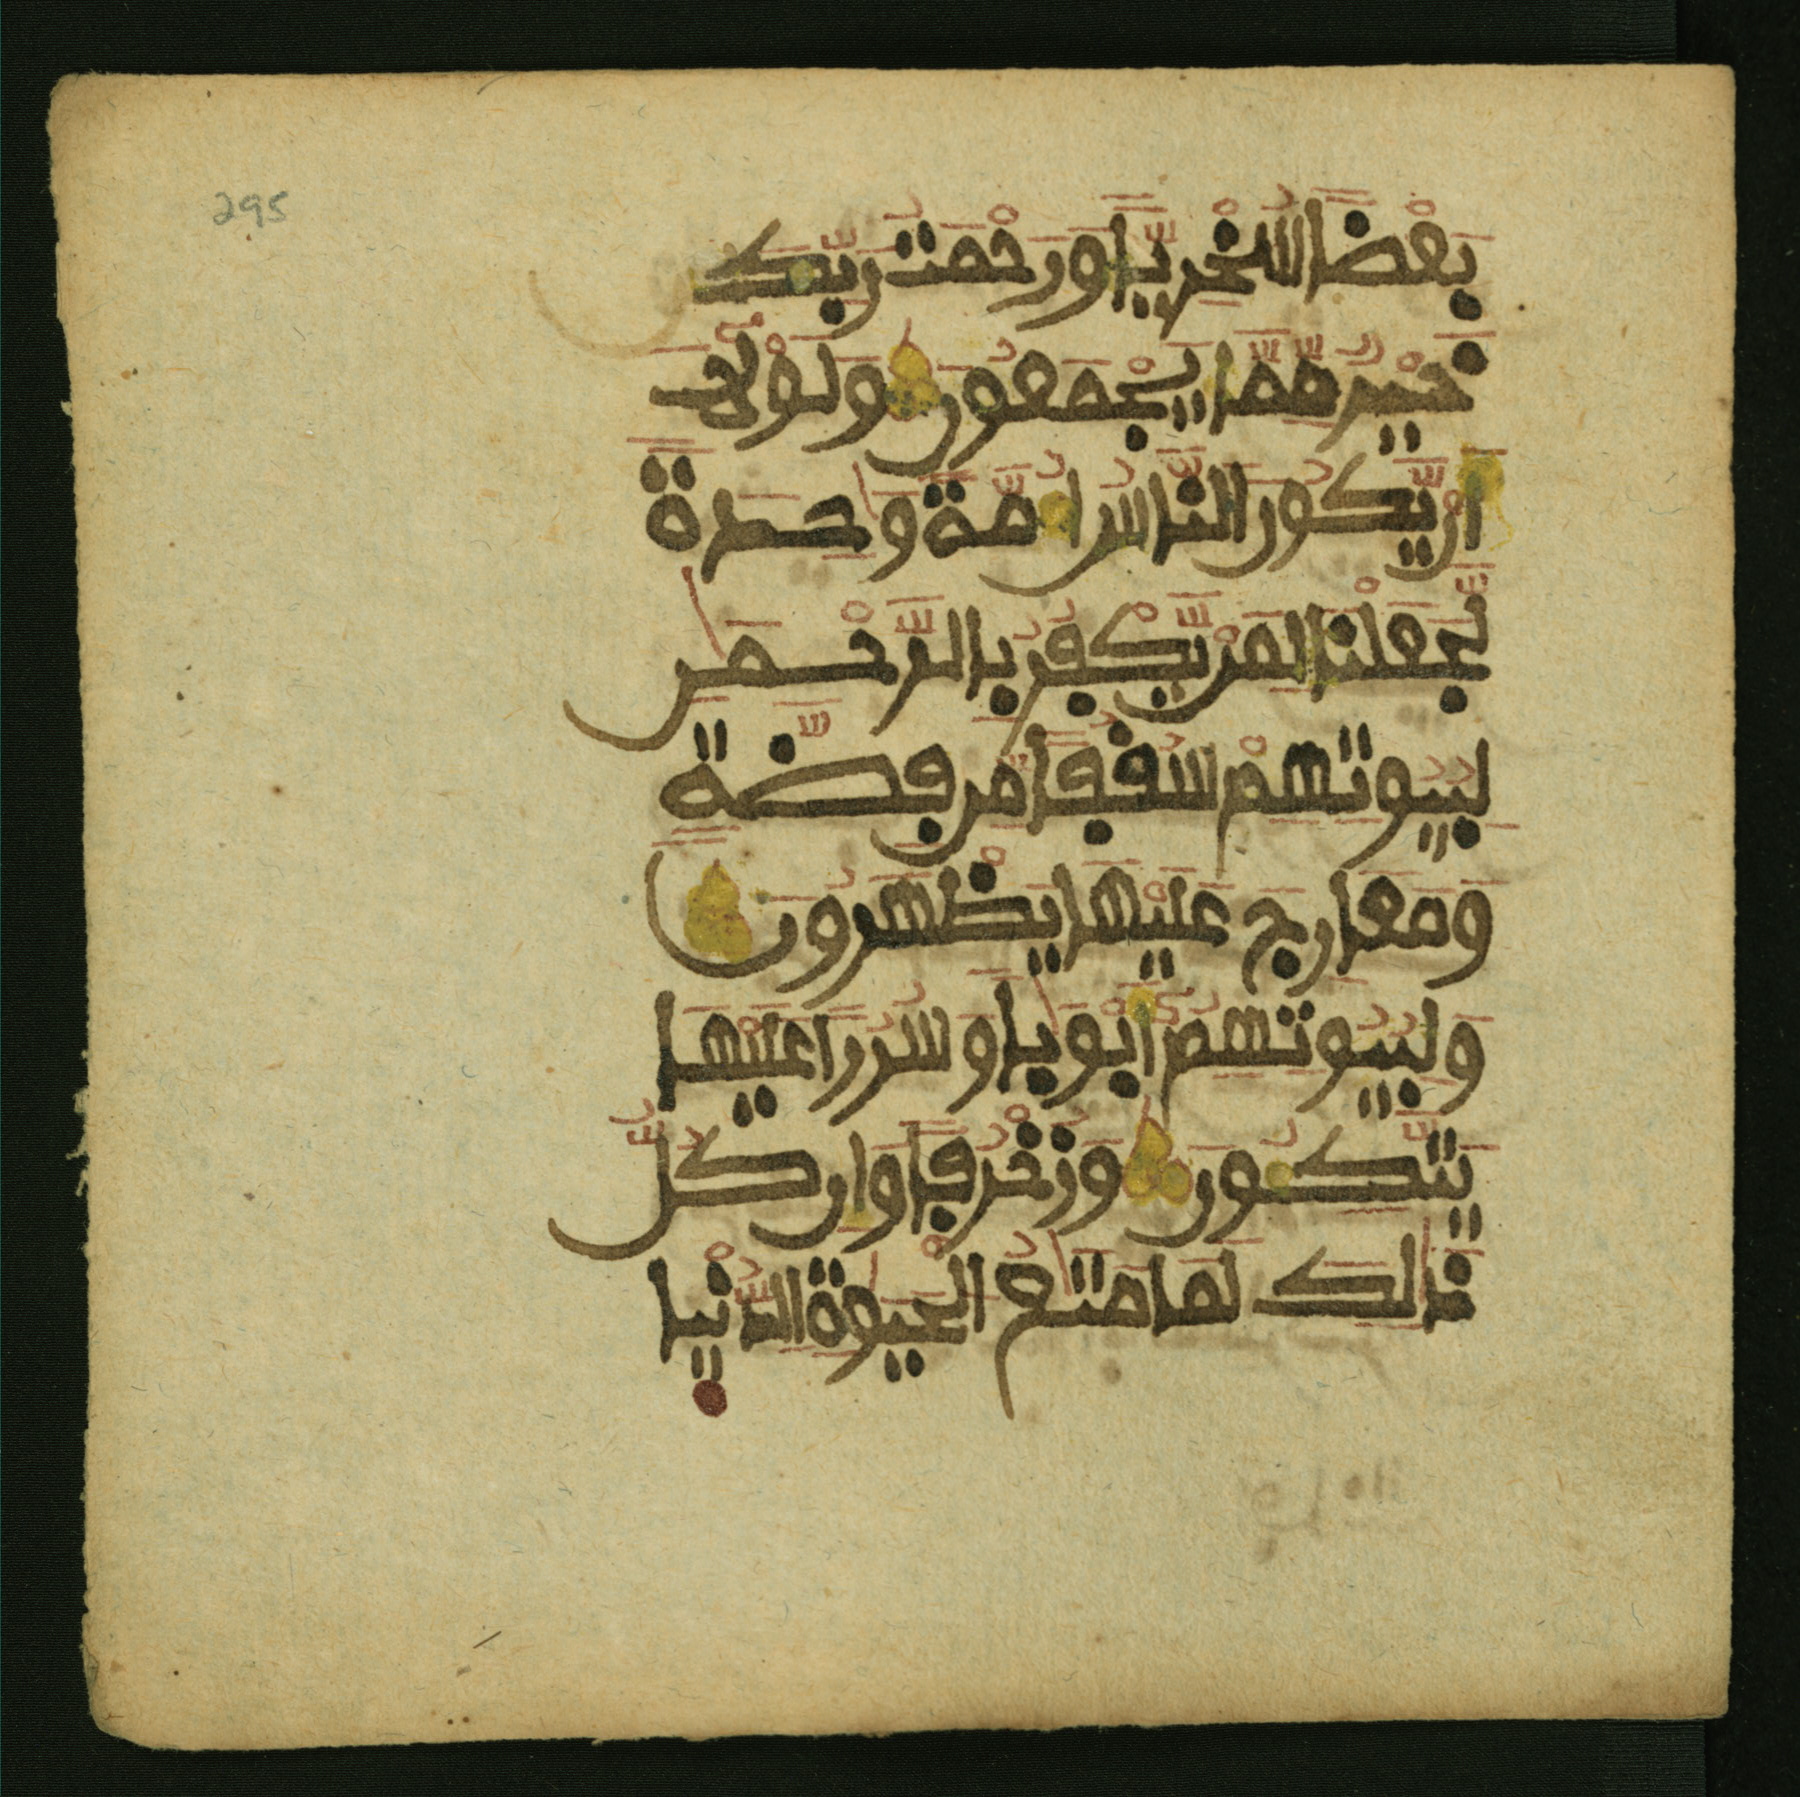 295
بَعْضًا سُخْرِيًّا وَرَحْمَتُ رَبِّكَ
خَيْرٌ مِّمَّا يَجْمَعُونَ وَلَوْلَا
أَن يَّكُونَ النَّاسُ أُمَّةً وَٰحِدَةً
لَّجَعَلْنَا لِمَن يَّكْفُرُ بِالرَّحْمَٰنِ
لِبُيُوتِهِمْ سُقُفًا مِّن فِضَّةٍ
وَمَعَارِجَ عَلَيْهَا يَظْهَرُونَ
وَلِبُيُوتِهِمُ أَبْوَٰبًا وَسُرُرًا عَلَيْهَا
يَتَّكُونَ وَزُخْرُفًا وَإِن كُلُّ
ذَٰلِكَ لَمَا مَتَٰعُ الْحَيَوٰةِ الدُّنْيَا